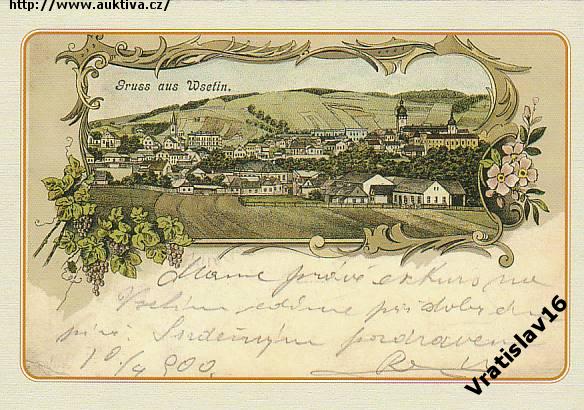 http://www.auktiva.cz/
Gruss aus Wsetin.
Máme právě exkurs na
Vsetín
pivě. Srdečným pozdravem
10/4 900.
Vratislav16